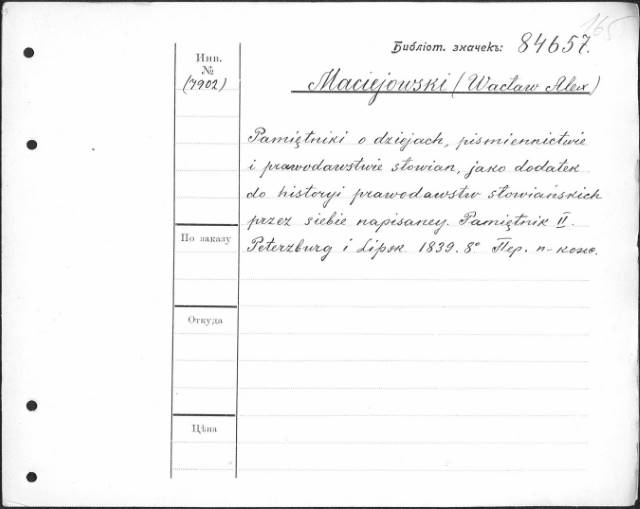 165
Библіот. значекъ: 84657.
Инв.
№
(7902)
Maciejowski (Wacław Alex)
Pamiętniki o dziejach, piśmiennictwie
i prawodawstwie słowian, jako dodatek
do historyi prawodawstw słowiańskich
przez siebie napisaney. Pamiętnik II.
По заказу
Peterzburg i Lipsk 1839. 8° Пер. п-кож.
Откуда
Цѣна